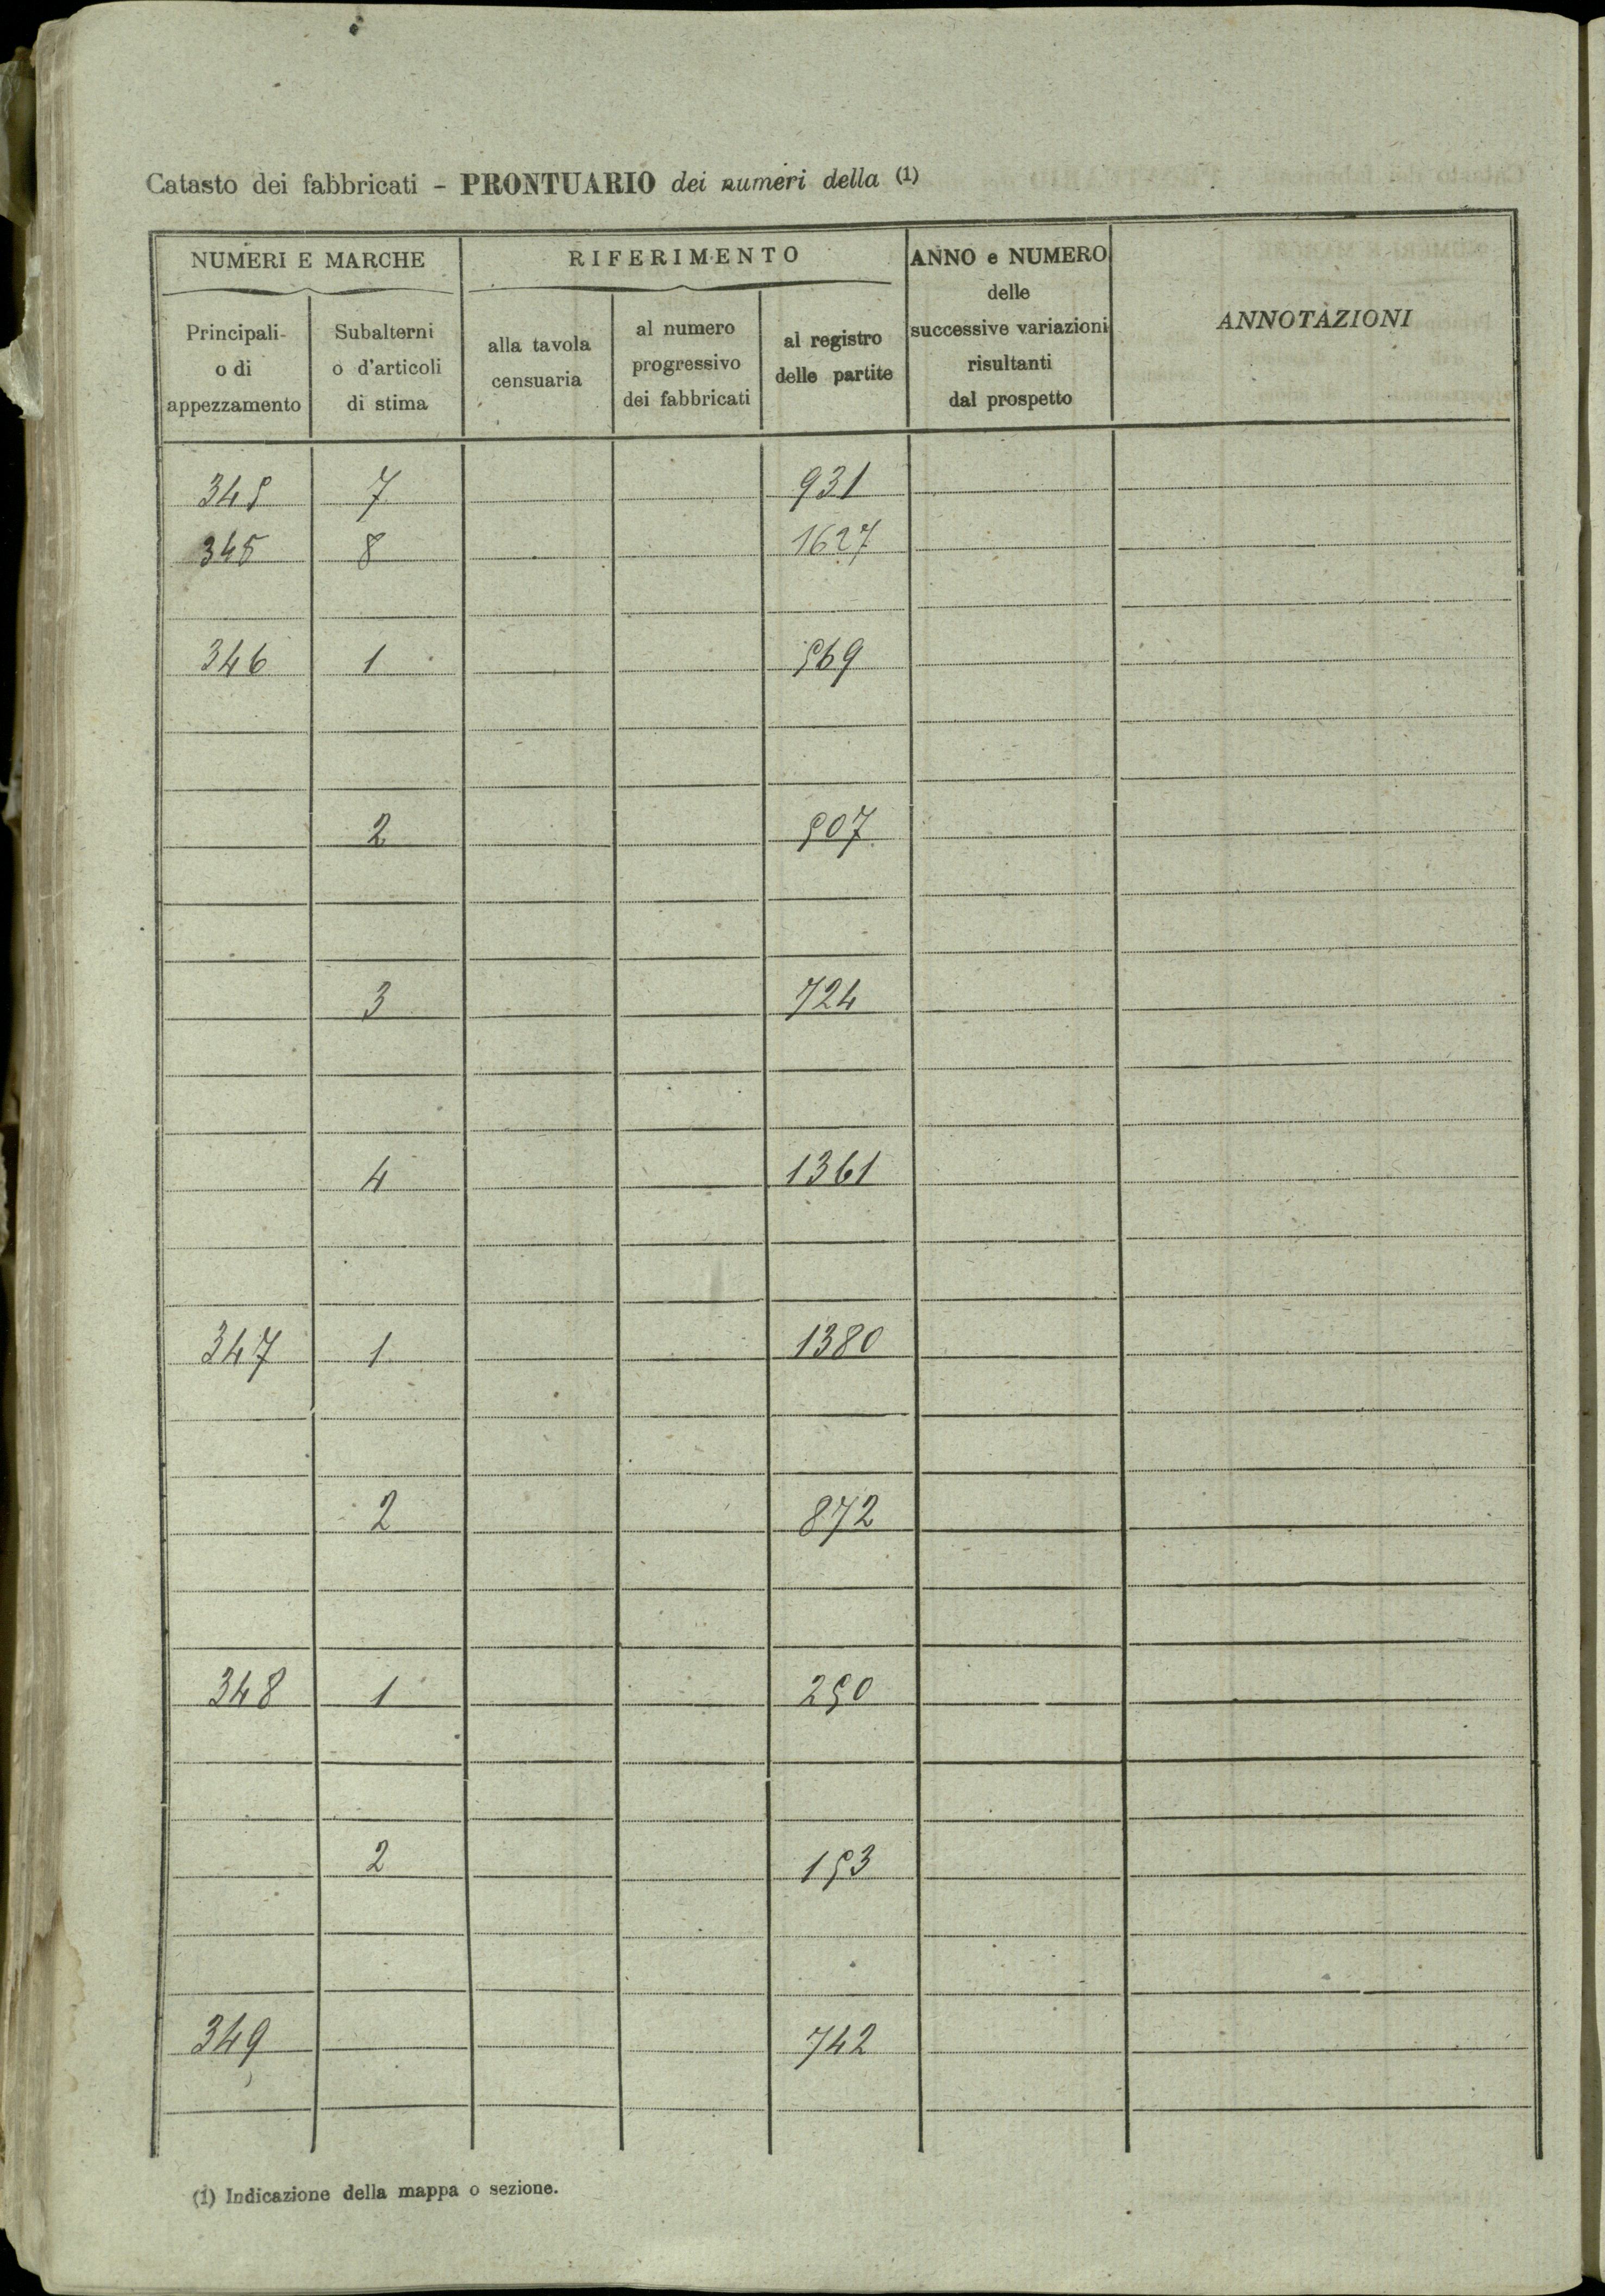 Catasto dei fabbricati - PRONTUARIO dei numeri della (1)
NUMERI E MARCHE
RIFERIMENTO
ANNO e NUMERO
delle
successive variazioni
risultanti
dal prospetto
ANNOTAZIONI
Principali
o di
appezzamento
Subalterni
o d'articoli
di stima
alla tavola
censuaria
al numero
progressivo
dei fabbricati
al registro
delle partite
345 7 931
345 8 1627
346 1 569
2 507
3 724
4 1361
347 1 1380
2 872
348 1 250
2 153
349 742
(1) Indicazione della mappa o sezione.